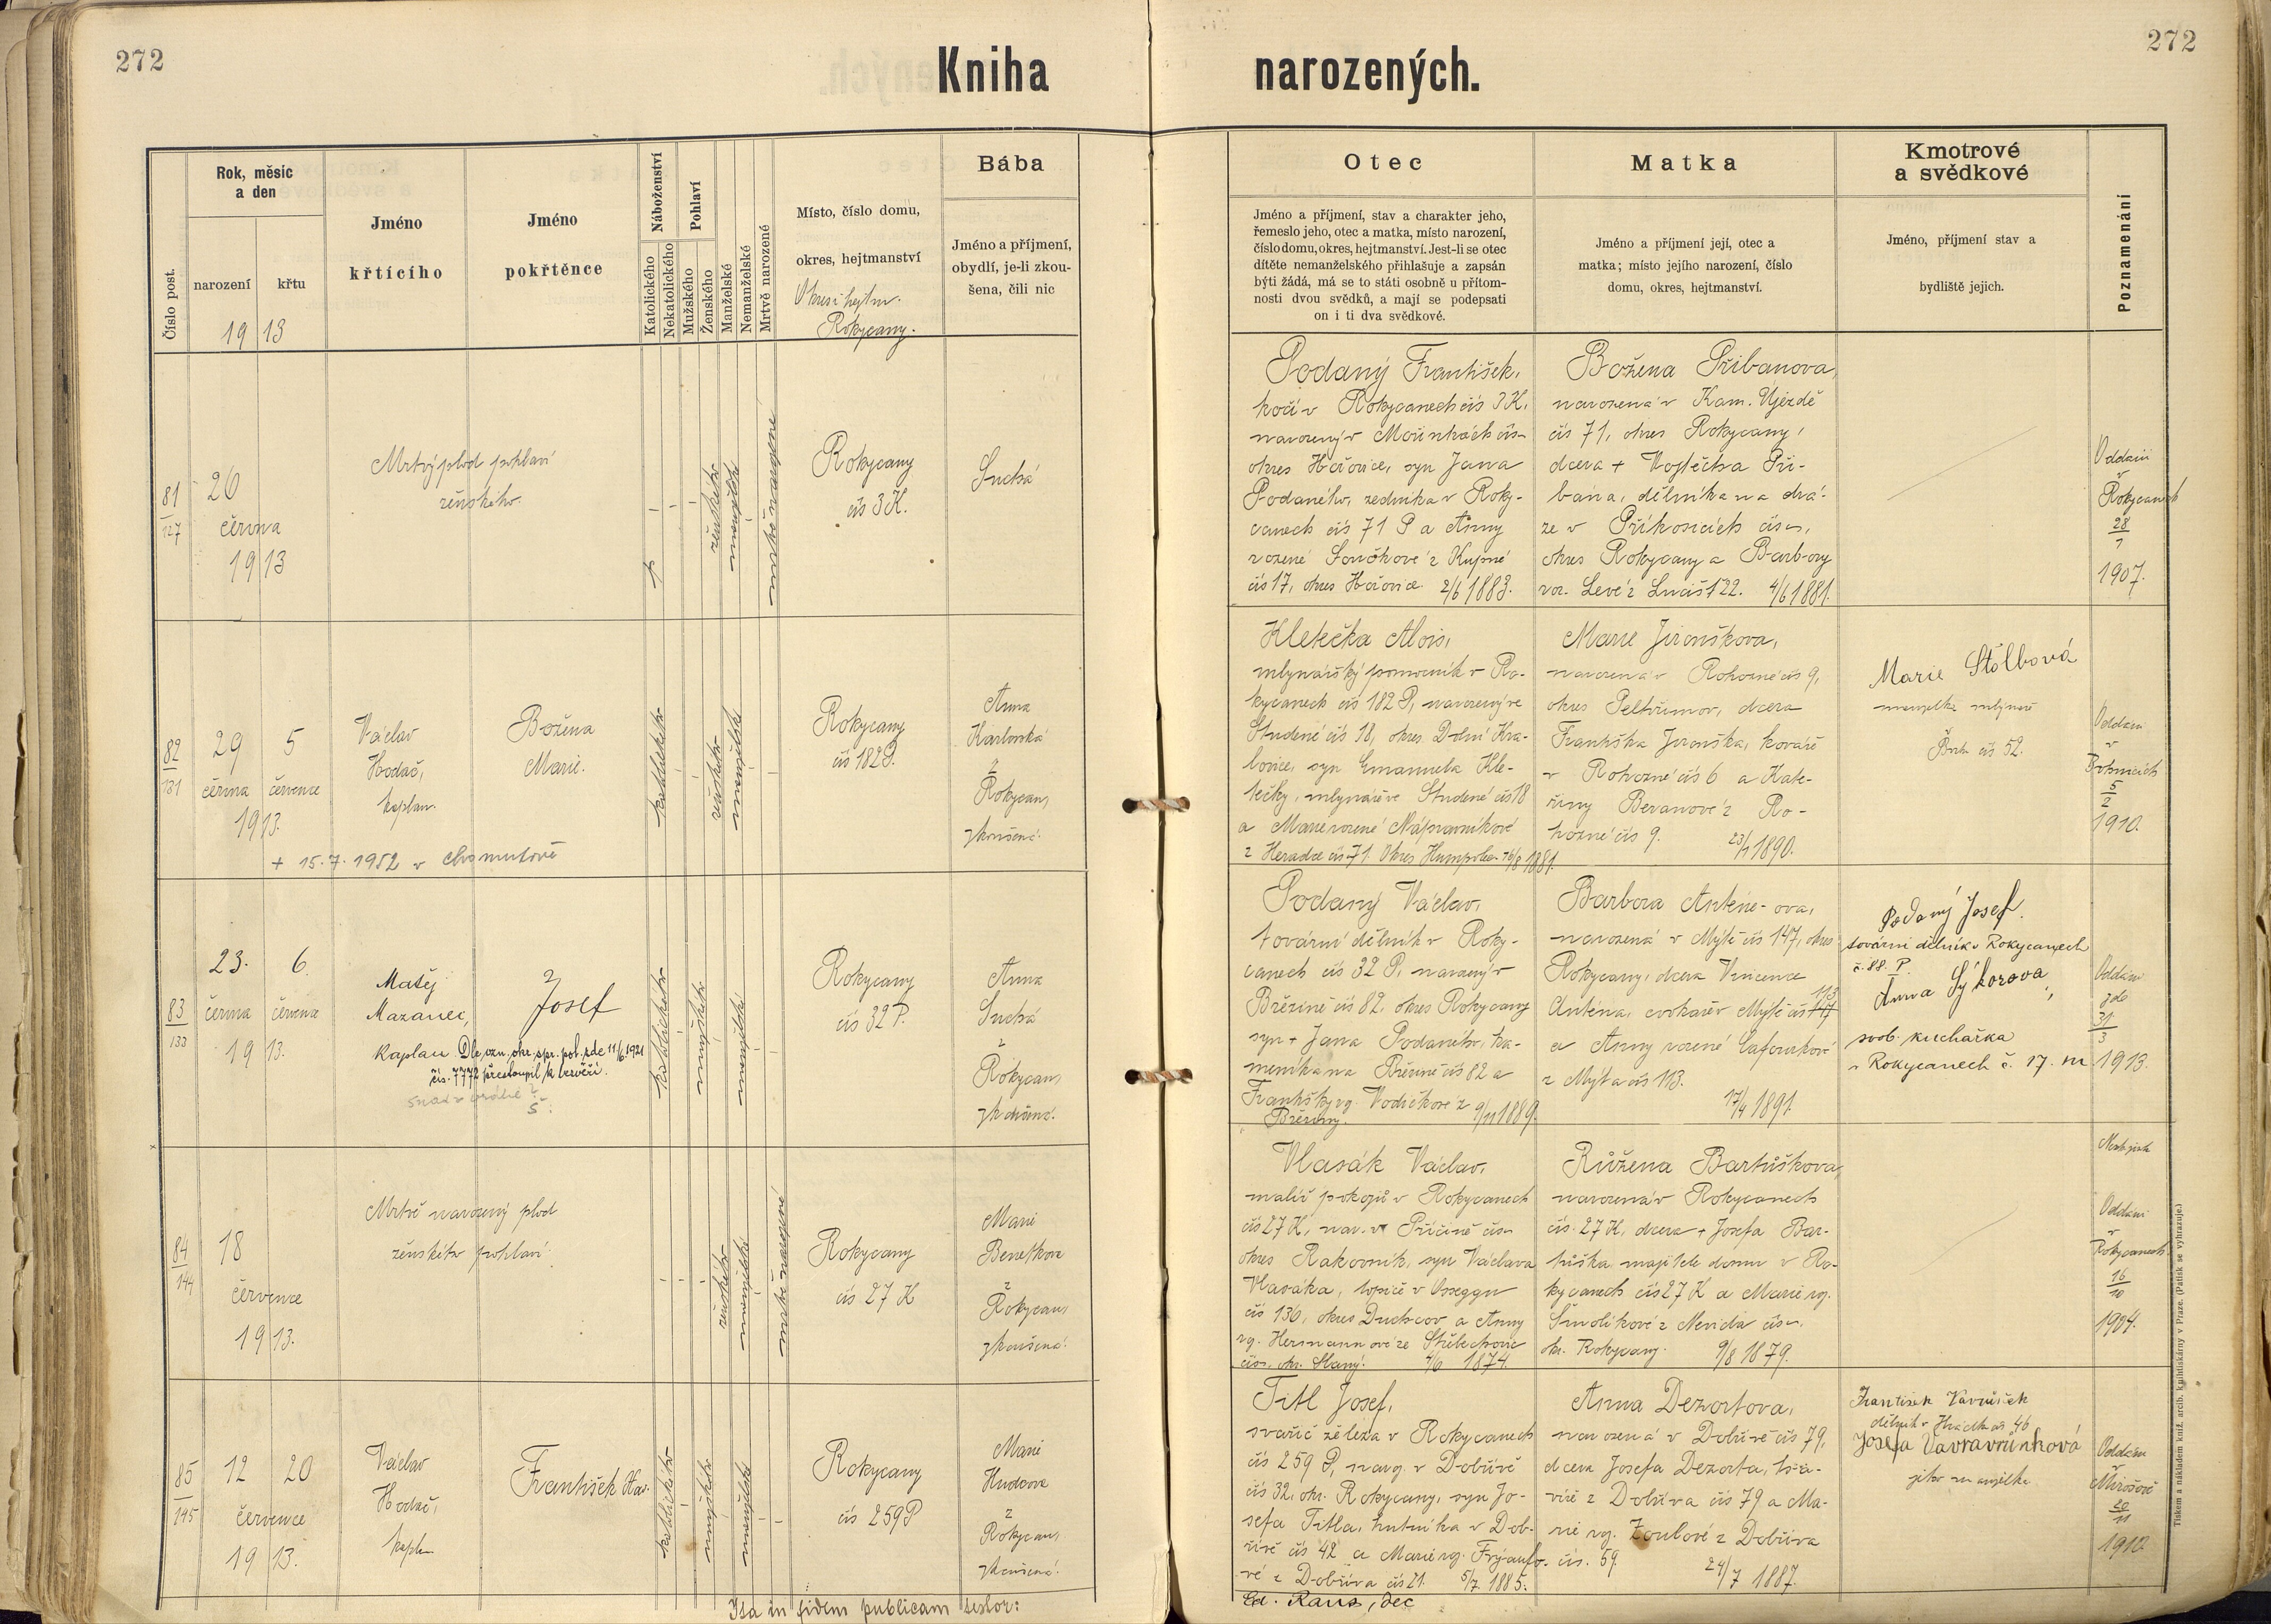 272
Kniha
narozených.
272
Číslo post.
Rok, měsíc
a den
narození
křtu
19 13
Jméno
křtícího
Jméno
pokřtěnce
Náboženství
Katolického
Nekatolického
Pohlaví
Mužského
Ženského
Manželské
Nemanželské
Mrtvě narozené
Místo, číslo domu,
okres, hejtmanství
Okres i hejtm.
Rokycany.
Bába
Jméno a příjmení,
obydlí, je-li zkou-
šena, čili nic
Otec
Jméno a příjmení, stav a charakter jeho,
řemeslo jeho, otec a matka, místo narození,
číslo domu, okres, hejtmanství. Jest-li se otec
dítěte nemanželského přihlašuje a zapsán
býti žádá, má se to státi osobně u přítom-
nosti dvou svědků, a mají se podepsati
on i ti dva svědkové.
Matka
Jméno a příjmení její, otec a
matka; místo jejího narození, číslo
domu, okres, hejtmanství.
Kmotrové
a svědkové
Jméno, příjmení stav a
bydliště jejich.
Poznamenání
81
127
26
června
1913
Mrtvý plod pohlaví
ženského.
ženského
manželské
mrtvě narozené
Rokycany
čís 3 K.
Suchá
Podaný František,
kočí v Rokycanech čís 3 K,
narozený v čís
okres Hořovice, syn Jana
Podaného, zedníka v Roky-
canech čís 71 P a Anny
rozené z
čís 17, okres Hořovice 2/6 1883.
Božena Přibanova,
narozená v Kam. Újezdě
čís 71, okres Rokycany,
dcera + Vojtěcha Při-
bána, dělníka na drá-
ze v Příkosicích čís
okres Rokycany a Barbory
roz. Levé z 22. 4/6 1881.
Oddáni
v
Rokycanech
28
1
1907.
82
131
29 5
června července
1913.
Václav
Hodač,
kaplan.
Božena
Marie.
+ 15.7.1952 v Chomutově
katolického
ženského
manželské
Rokycany
čís 182 P.
Anna
Karlovská
z
Rokycan,
zkoušená.
Kletečka Alois,
mlynářský pomocník v Ro-
kycanech čís 182 P, narozený ve
Studené čís 18, okres Dolní Kra-
lovice, syn Emanuela Kle-
tečky, mlynáře ve Studené čís 18
a Marie rozené Nápravníkové
z Heralce čís 71. Okres Humpolec 16/8 1881.
Marie Jirouškova,
narozená v Rohozné čís 9,
okres Pelhřimov, dcera
Františka Jirouška, kováře
v Rohozné čís 6 a Kate-
řiny Beranové z Ro-
hozné čís 9. 23/1 1890.
Marie Štólbová
manželka mlynáře
čís 52.
Oddáni
v
5
2
1910.
83
133
23. 6.
června července
1913.
Matěj
Mazanec,
kaplan
Josef
Dle ozn. okr. spr. pol. zde 11/6 1921
čís. 7772 přestoupil k bezvěří.
katolického
mužského
manželské
Rokycany
čís 32 P.
Anna
Suchá
z
Rokycan,
zkoušená.
Podaný Václav,
tovární dělník v Roky-
canech čís 32 P, narozený v
Březině čís 82, okres Rokycany
syn + Jana Podaného, ka-
meníka na Březině čís 82 a
Františky rz. Vodičkové z 9/11 1889.
Březiny.
Barbora Antén-ova,
narozená v Mýtě čís 147, okres
Rokycany, dcera Vincence
Anténa, cvokaře v Mýtě čís 113
a Anny rozené Cafourkové
z Mýta čís 113.
17/4 1891.
Podaný Josef.
tovární dělník v Rokycanech
č. 88. P.
Anna Sýkorova,
svob. kuchařka
v Rokycanech č. 17. m
Oddáni
zde
31
3
1913.
84
144
18
července
1913.
Mrtvě narozený plod
ženského pohlaví.
ženského
manželské
mrtvě narozené
Rokycany
čís 27 K
Marie
Benešova
z
Rokycan,
zkoušená.
Vlasák Václav,
malíř pokojů v Rokycanech
čís 27 K, nar. v Příčině čís
okres Rakovník, syn Václava
Vlasáka, topiče v Osseggu
čís 136, okres Duchcov a Anny
rz. Hermannové ze Střebechovic
čís, okr. Slaný. 4/6 1874.
Růžena Bartůškova,
narozená v Rokycanech
čís. 27 K, dcera + Josefa Bar-
tůška, majitele domu v Ro-
kycanech čís 27 K a Marie rz.
Smolíkové z Nevida čís.
okr. Rokycany. 9/8 1879.
Oddáni
v
Rokycanech
16
10
1904.
85
145
12 20
července
1913.
Václav
Hodač,
kaplan
František Hav.
katolického
mužského
manželské
Rokycany
čís 259 P
Marie
Hudcova
z
Rokycan,
zkoušená.
Titl Josef,
svařič železa v Rokycanech
čís 259 P, naroz. v Dobřívě
čís 32, okr. Rokycany, syn Jo-
sefa Titla, hutníka v Dob-
řívě čís 42 a Marie rz. Frýaufo-
vé z Dobříva čís 21. 5/7 1885.
Anna Dezortova,
narozená v Dobřívě čís 79,
dcera Josefa Dezorta,
z Dobříva čís 79 a Ma-
rie rz. Zoulové z Dobříva
čís. 59
24/7 1887.
František Vavruněk
dělník v Hrádku čís 46
Josefa Vavruňková
jeho manželka
Oddáni
v
Mirošově
20
11
1910.
Ita in fidem publicam testor:
Ed. Raus, děc
Tiskem a nákladem kníž. arcib. knihtiskárny v Praze. (Patisk se vyhrazuje.)